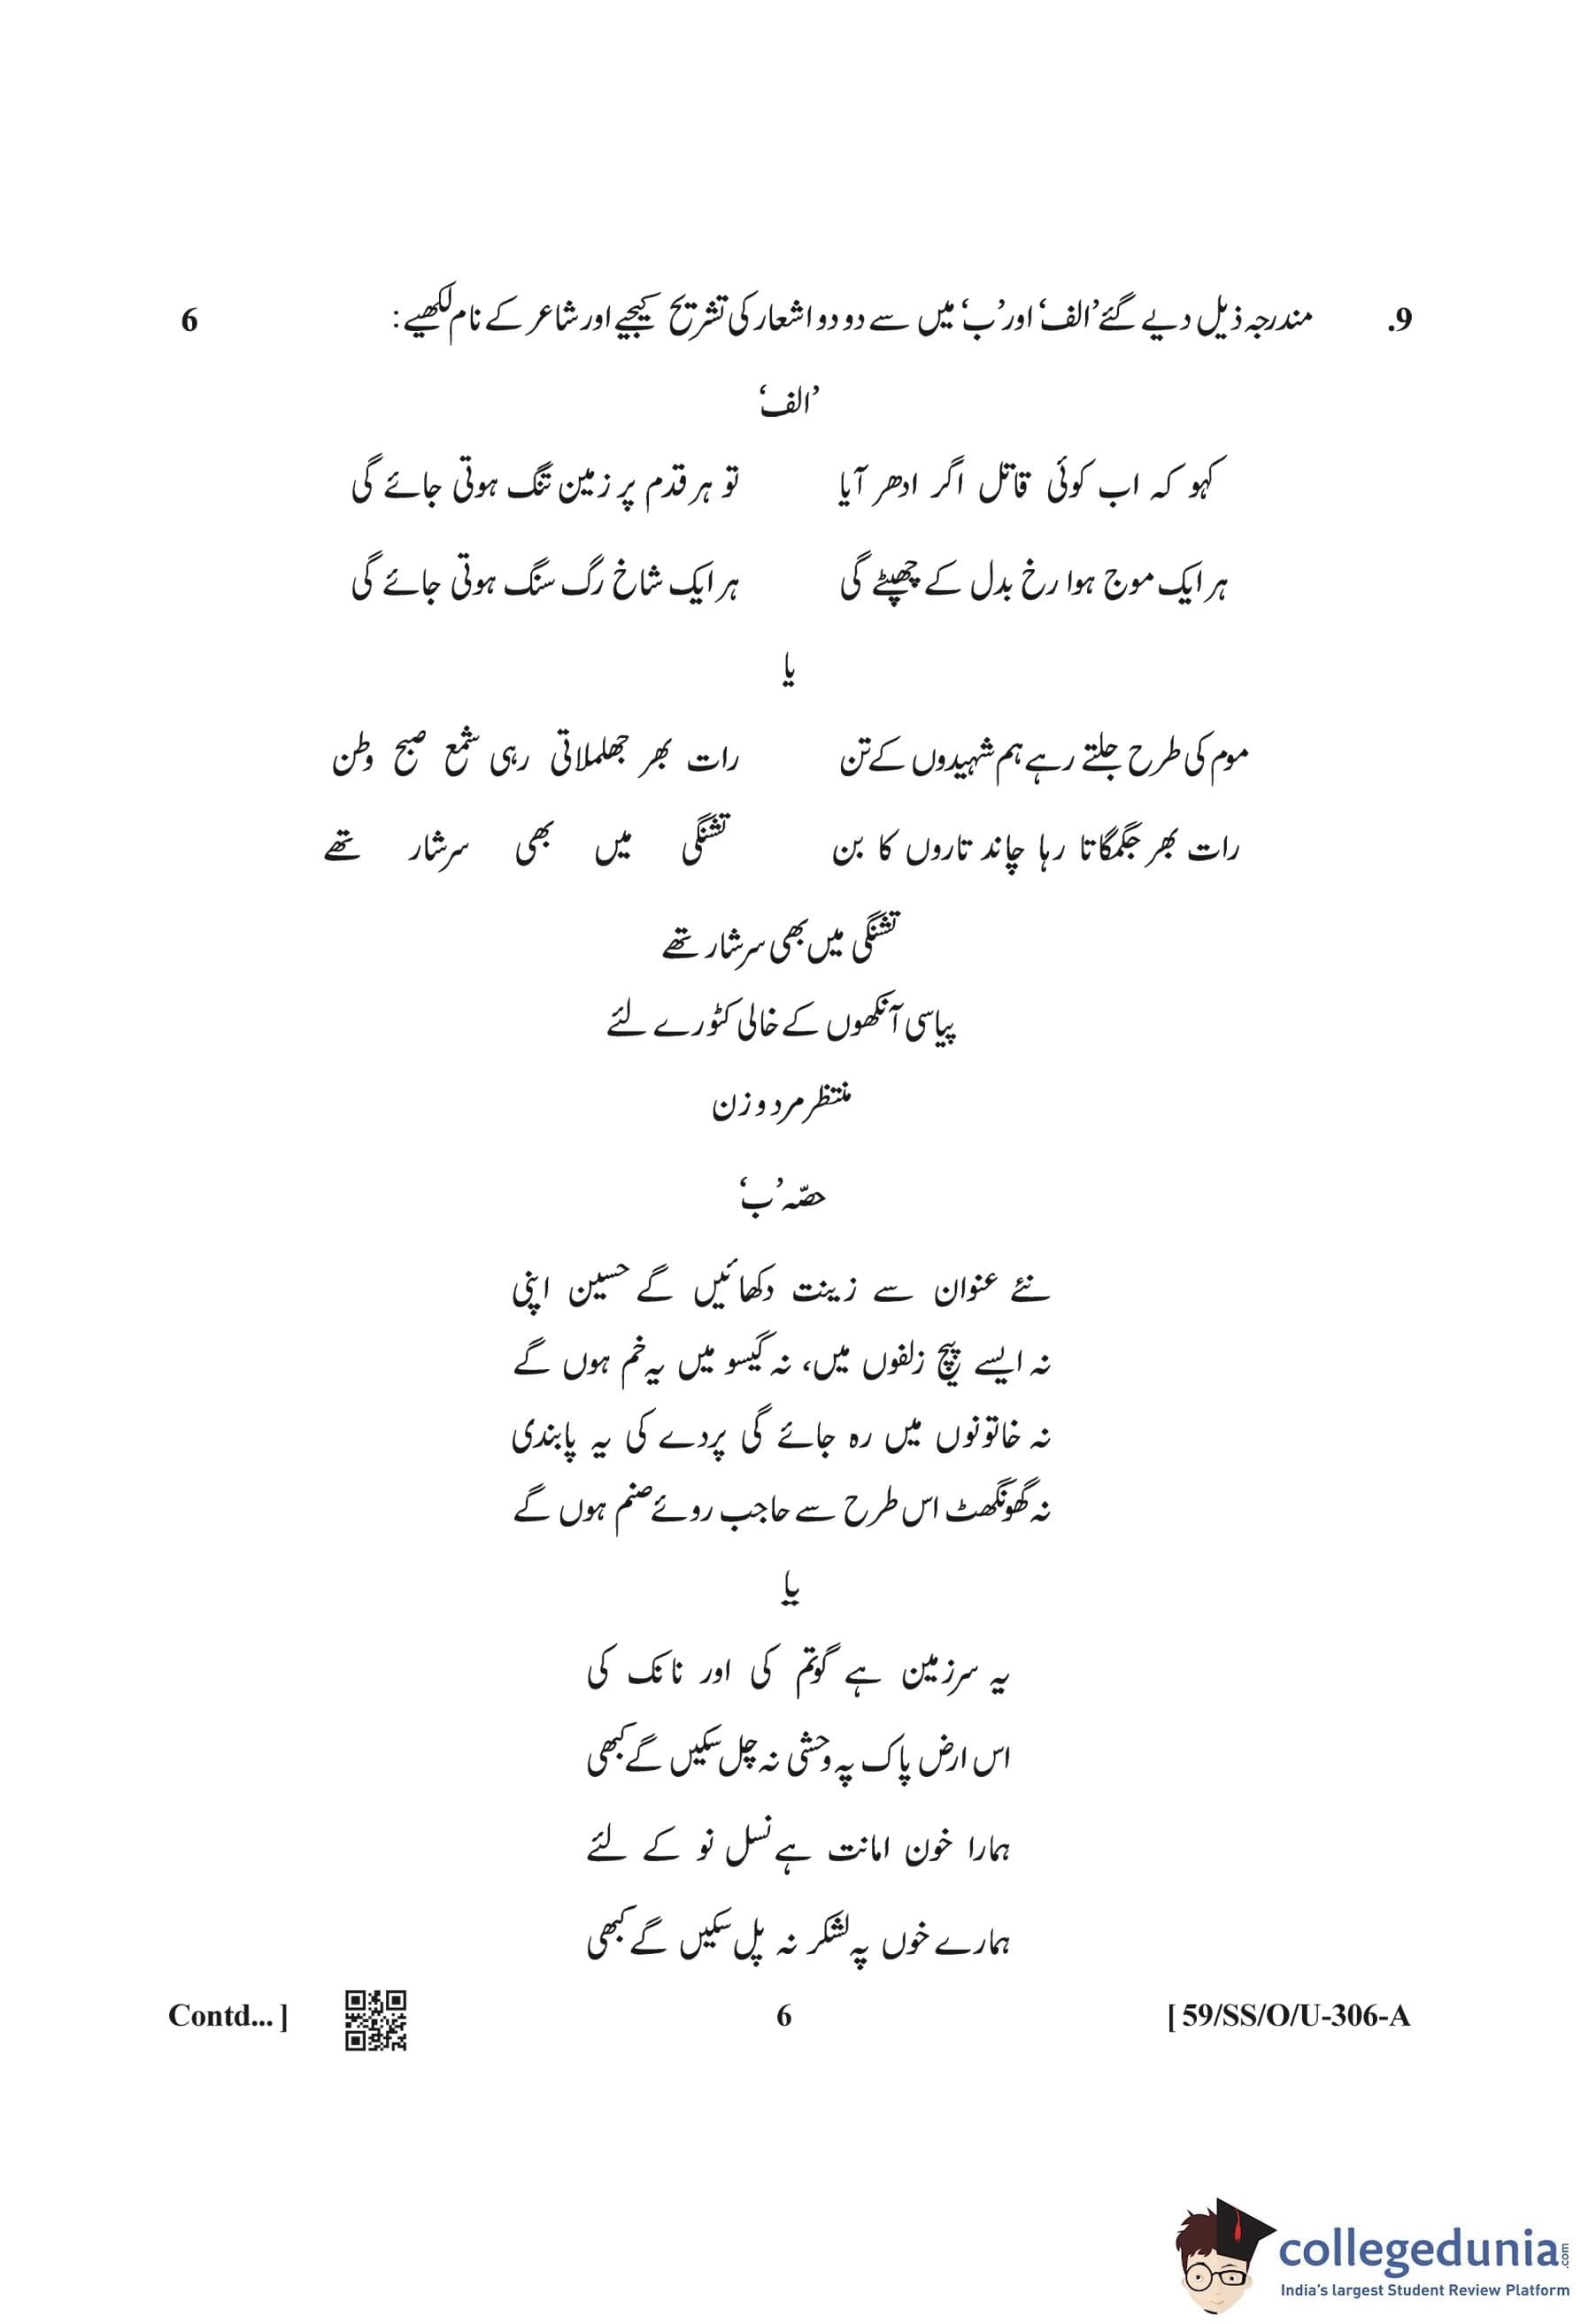 9. مندرجہ ذیل دیے گئے ’الف‘ اور ’ب‘ میں سے دو دو اشعار کی تشریح کیجیے اور شاعر کے نام لکھیے : 6
’الف‘
کہو کہ اب کوئی قاتل اگر ادھر آیا تو ہر قدم پر زمین تنگ ہوتی جائے گی
ہر ایک موج ہوا رخ بدل کے جھپٹے گی ہر ایک شاخ رگ سنگ ہوتی جائے گی
یا
موم کی طرح جلتے رہے ہم شہیدوں کے تن رات بھر جھلملاتی رہی شمع صبح وطن
رات بھر جگمگاتا رہا چاند تاروں کا بن تشنگی میں بھی سرشار تھے
تشنگی میں بھی سرشار تھے
پیاسی آنکھوں کے خالی کٹورے لئے
منتظر مرد و زن
حصّہ ’ب‘
نئے عنوان سے زینت دکھائیں گے حسین اپنی
نہ ایسے پیچ زلفوں میں، نہ گیسو میں یہ خم ہوں گے
نہ خاتونوں میں رہ جائے گی پردے کی یہ پابندی
نہ گھونگھٹ اس طرح سے حاجب روئے صنم ہوں گے
یا
یہ سرزمین ہے گوتم کی اور نانک کی
اس ارض پاک پہ وحشی نہ چل سکیں گے کبھی
ہمارا خون امانت ہے نسل نو کے لئے
ہمارے خوں پہ لشکر نہ پل سکیں گے کبھی
Contd... ] 6 [ 59/SS/O/U-306-A
collegedunia.com
India's largest Student Review Platform